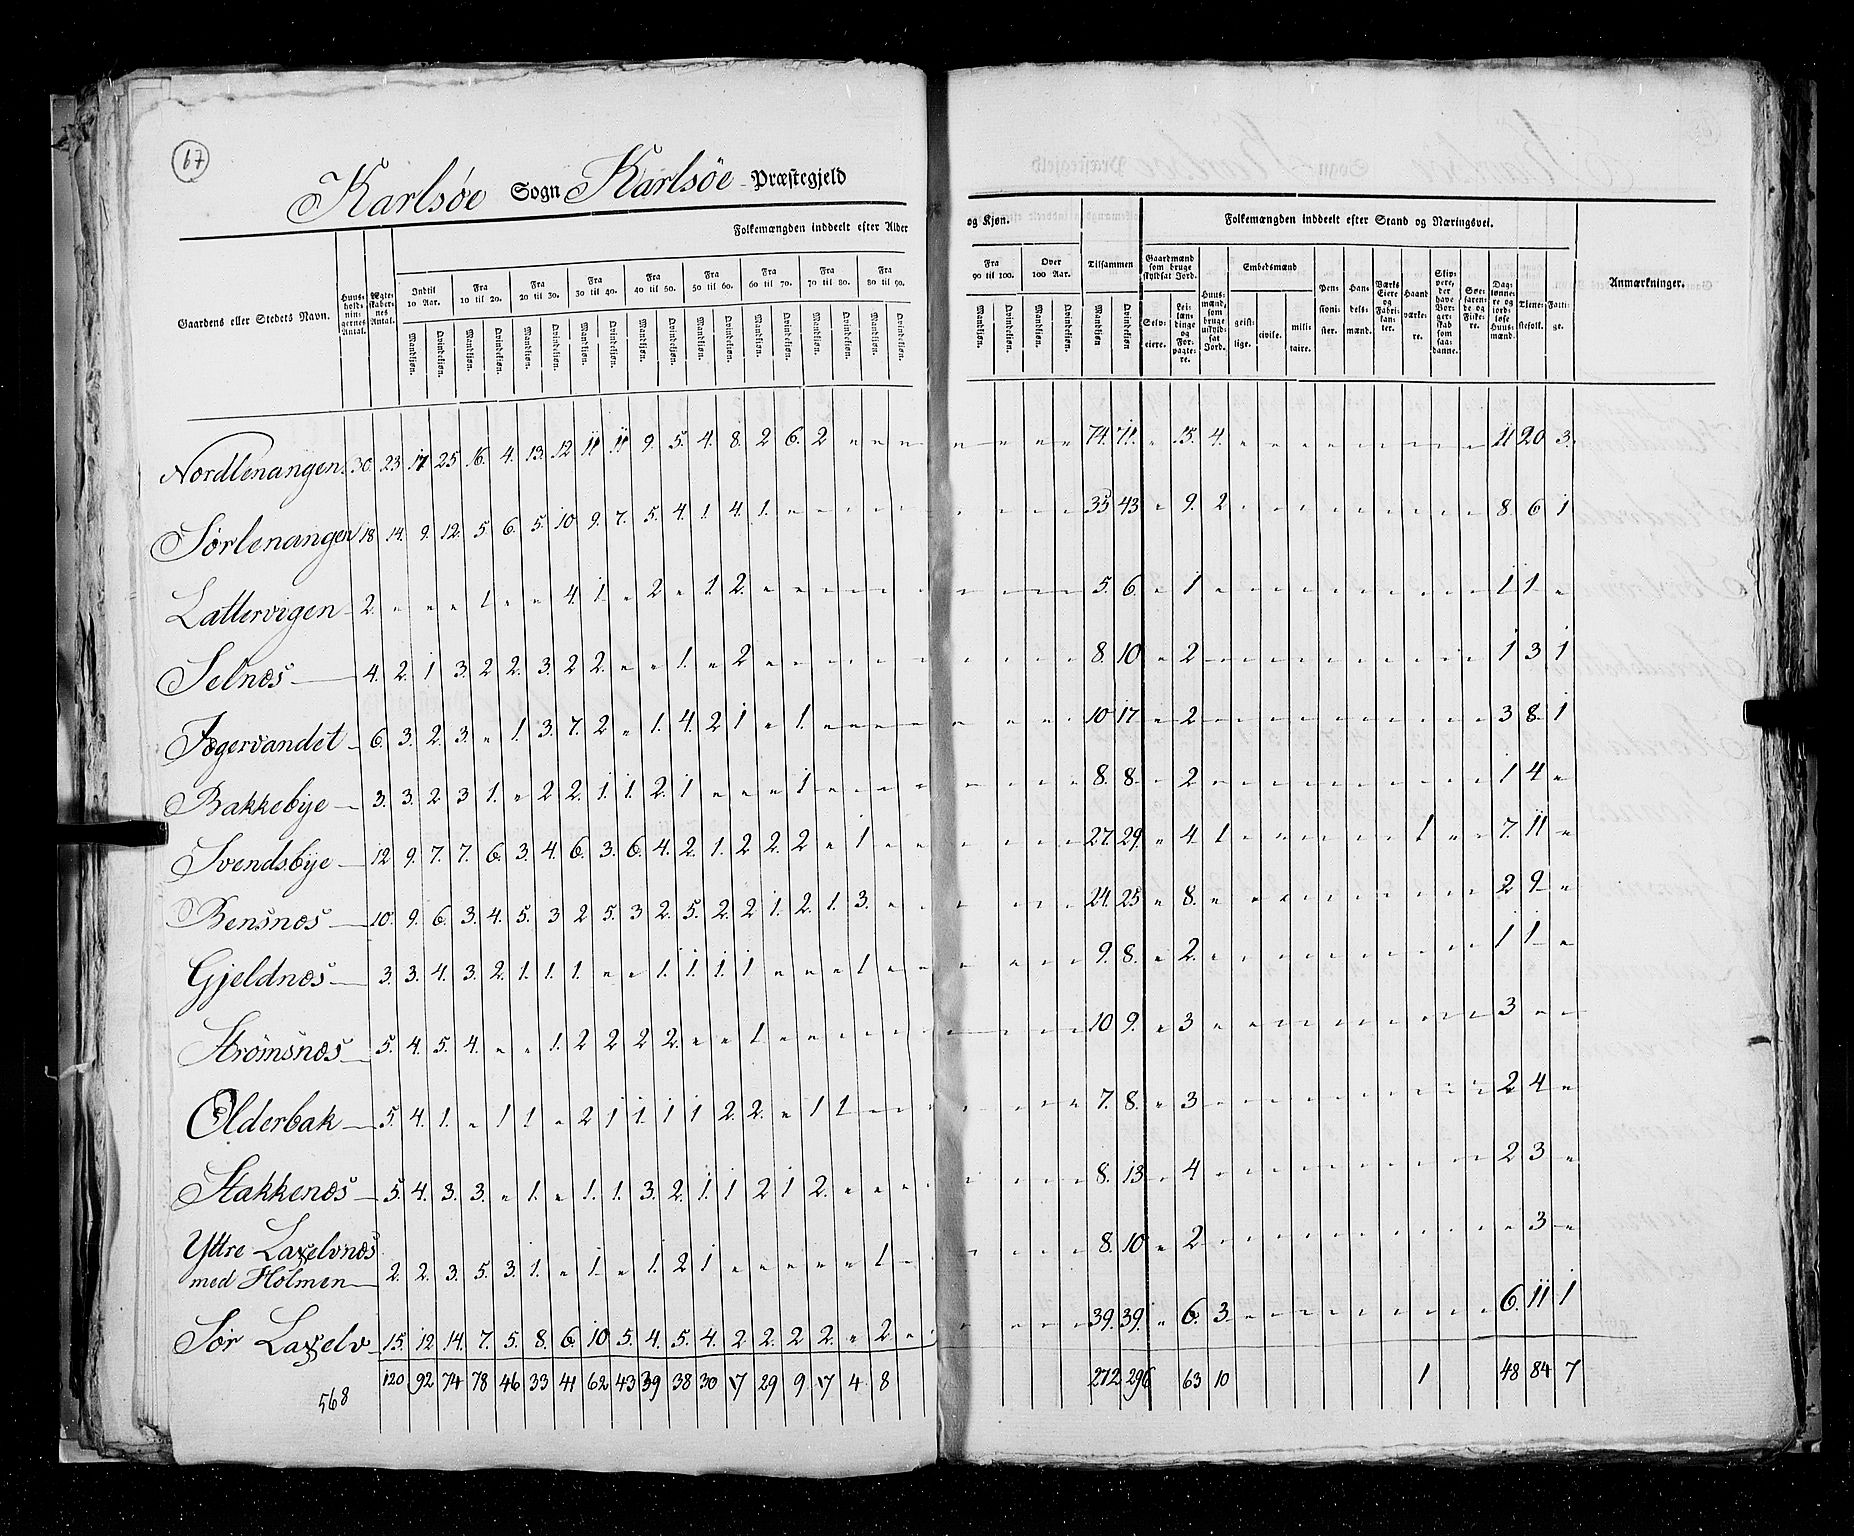 67
Karlsøe Sogn Karlsöe Præstegjeld
Folkemængden inddeelt efter Alder og Kjøn. Folkemængden inddeelt efter Stand og Næringsvei.
Gaardens eller Stedets Navn. Huusholdningernes Antal. Ægteskabernes Antal. Indtil 10 Aar. Fra 10 til 20. Fra 20 til 30. Fra 30 til 40. Fra 40 til 50. Fra 50 til 60. Fra 60 til 70. Fra 70 til 80. Fra 80 til 90. Fra 90 til 100. Over 100 Aar. Tilsammen Gaardmænd som bruge skyldsat Jord. Huusmænd, som bruge uskyldsat Jord. Embedsmænd Pensionister. Handelsmænd. Værks Eiere og Fabrikanter. Haandværkere. Skippere, der have Borgerskab som saadanne. Søefarende og Fiskere. Dagsjønnere og jordløse Huusmænd. Tjenestefolk. Fattige. Anmærkninger.
Mandkjøn. Qvindekjøn. Mandkjøn. Qvindekjøn. Mandkjøn. Qvindekjøn. Mandkjøn. Qvindekjøn. Mandkjøn. Qvindekjøn. Mandkjøn. Qvindekjøn. Mandkjøn. Qvindekjøn. Mandkjøn. Qvindekjøn. Mandkjøn. Qvindekjøn. Mandkjøn. Qvindekjøn. Mandkjøn. Qvindekjøn. Mandkjøn Qvindekjøn Selveiere. Leilændinge og Forpagtere. geistlige. civile. militaire.
Nordlenangen 30. 23. 17 25 16. 4. 13. 12 11 11 9. 5. 4. 8. 2 6. 2 " " " " " " " 74. 71. " 15. 4. " " " " " " " " " 11 20 3.
Sørlenangen 18 14. 9. 12. 5 6. 5. 10 9. 7. 5. 4. 1. 4. 1. " " " " " " " " " 35 43 " 9. 2 " " " " " " " " " 8. 6 1
Lattervigen 2. " " " 1. " " 4. 1. " 2 " 1. 2. " " " " " " " " " " 5. 6. " 1 " " " " " " " " " " 1 1. "
Selnæs 4. 2. 1 3. 2 2. 3. 2 2. " " 1. " 2 " " " " " " " " " " 8. 10. " 2 " " " " " " " " " " 1 3 1
Jægervandet 6. 3. 2. 3. " 1. 3. 7. 2 " 1. 4. 2 1 " 1. " " " " " " " " 10 17. " 2 " " " " " " " " " " 3 8. 1
Bakkebÿe 3. 3. 2 3 1. " 2 2. 1 1. 2. 1 " " " 1. " " " " " " " " 8. 8. " 2 " " " " " " " " " " 1 4 "
Svendsbÿe 12 9. 7. 7. 6. 3. 4. 6. 3. 6. 4. 2. 1. 2 2. 2 " 1 " " " " " " 27. 29. " 4. 1 " " " " " " 1 " " 7. 11 "
Bensnæs 10. 9. 6. 3. 4. 5. 3 2 5. 3 2. 5. 2. 2 1. 2. 1. 3. " " " " " " 24. 25 " 8. " " " " " " " " " " 2 9. "
Gjeldnæs 3. 3. 4. 3. 2. 1. 1. 1. " " 1. 1. 1. 1 " " " 1 " " " " " " 9. 8. " 2. " " " " " " " " " " 1 1. "
Strømsnæs 5. 4. 5. 4. " " 1. 2 2 2 2. " " 1 " " " " " " " " " " 10 9. " 3 " " " " " " " " " " 3 " "
Olderbak 5. 4. 1. " 1 1. " 2 1 1. 1 1 2. 2. " 1 1 " " " " " " " 7. 8. " 3 " " " " " " " " " " 2 4 "
Stakkenæs 5. 4. 3. 3. " 1. " 1. 1. 3. 2. 1 1 2 1 2. " " " " " " " " 8. 13. " 4 " " " " " " " " " " 2 3 "
Yttre Laxelvnæs
med Holmen 2. 2. 3. 5. 3. 1. " 1. " 1. 2 1 " " " " " 1. " " " " " " 8. 10 " 2 " " " " " " " " " " " 3 "
Sør Laxelv 15. 12 14. 7. 5. 8. 6. 10 5. 4. 5. 4. 2 2. 2 2. " 2 " " " " " " 39. 39. " 6. 3. " " " " " " " " " 6. 11 1
120 92 74 78 46 33 41 62 43 39 38 30 17 29 9 17 4 8 272 296 63 10 1 48 84 7
568